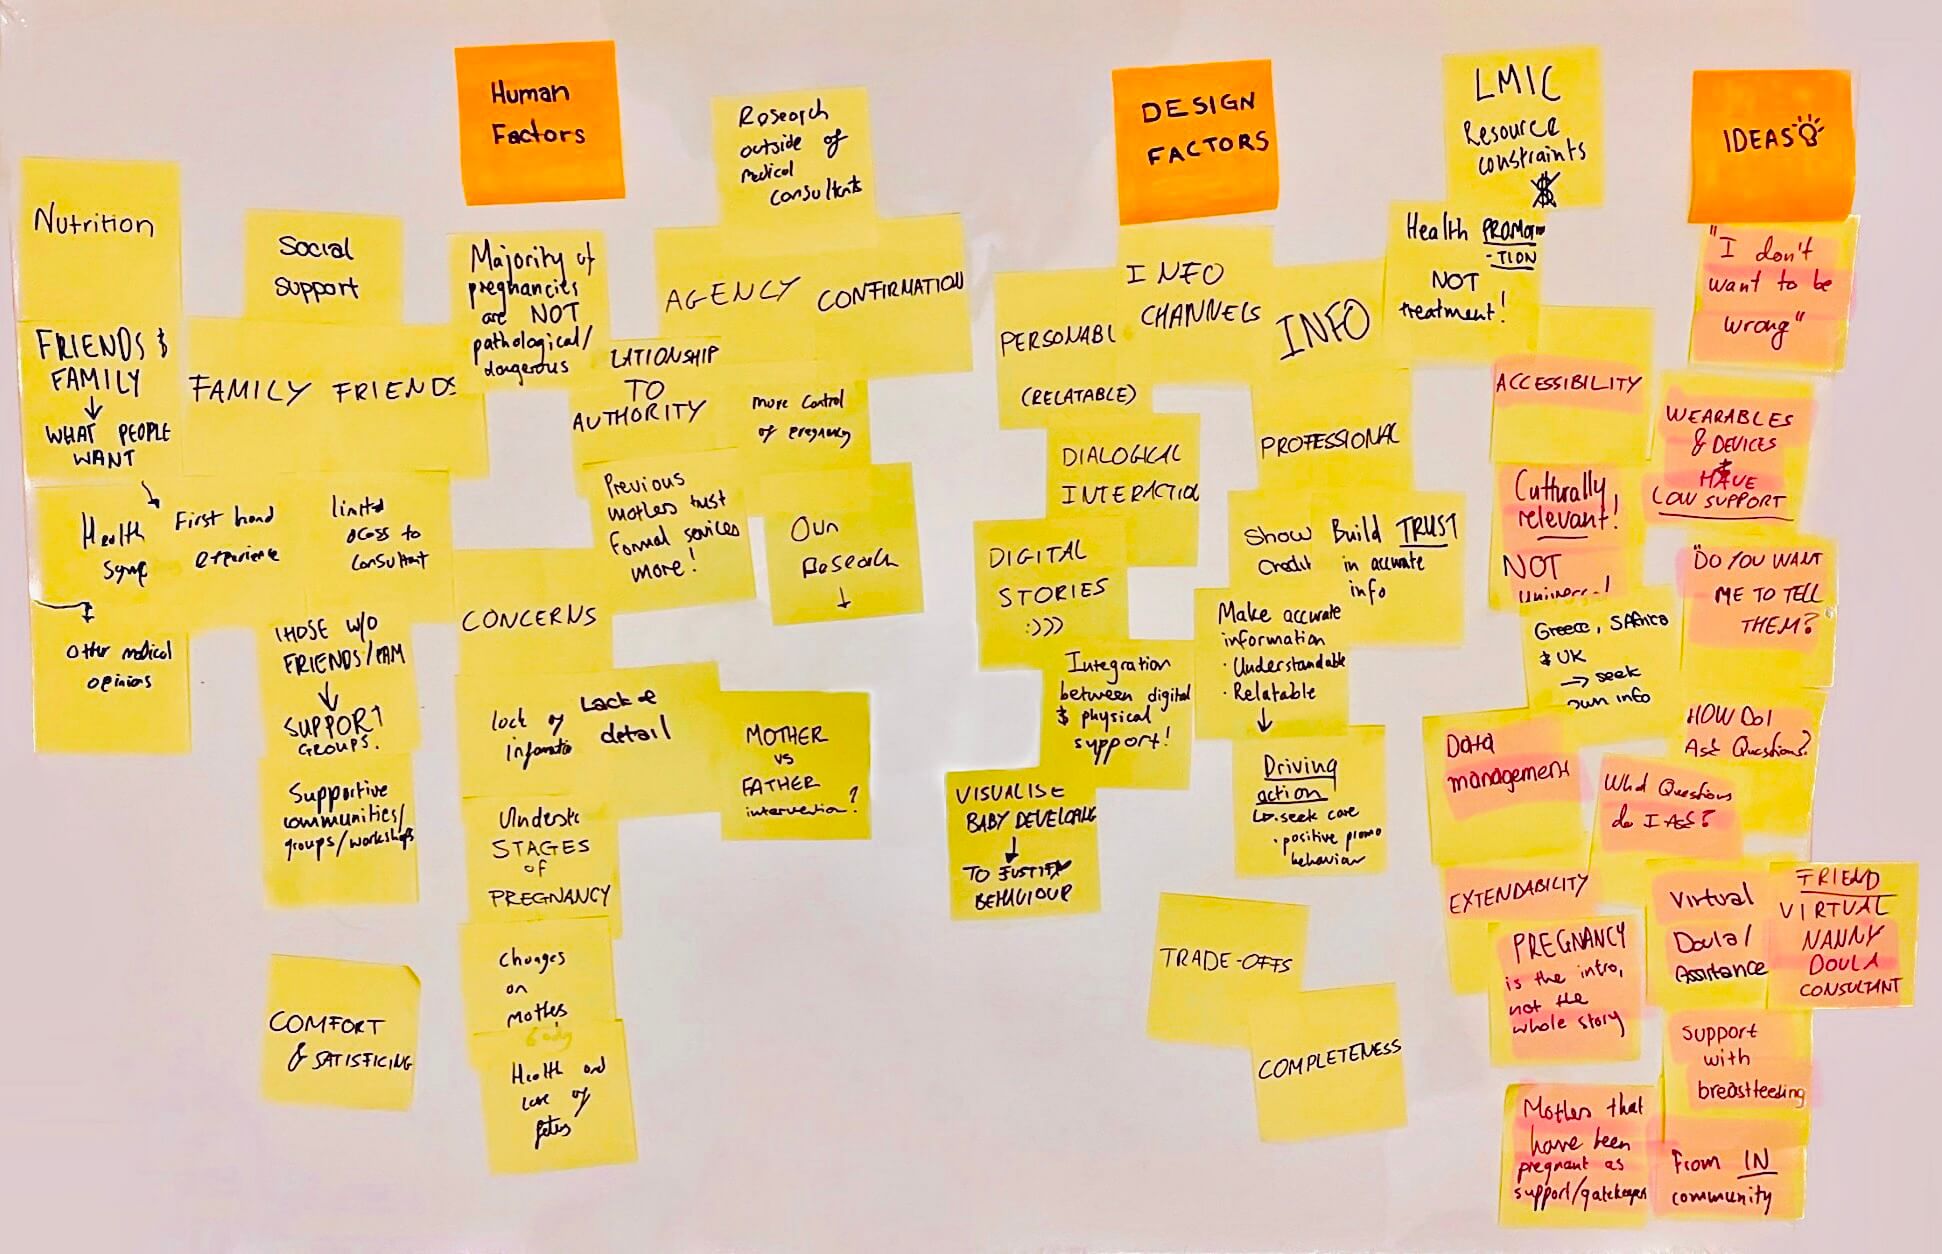 Human
Factors
Research
outside of
medical
consultants
Nutrition
Social
Support
Majority of
pregnancies
are NOT
pathological/
dangerous
AGENCY
CONFIRMATION
FRIENDS &
FAMILY
↓
WHAT PEOPLE
WANT
FAMILY
FRIENDS
LATIONSHIP
TO
AUTHORITY
more control
of pregnancy
Health
First hand
experience
limited
access to
consultant
Previous
mothers trust
formal services
more!
Own
Research
↓
Other medical
opinions
THOSE W/O
FRIENDS/FAM
↓
SUPPORT
GROUPS.
Supportive
communities/
groups/workshops
CONCERNS
lack of
informatio
Lack of
detail
MOTHER
vs
FATHER
intervention?
Understa
STAGES
OF
PREGNANCY
Changes
on
mothers
body
Health and
care of
fetus
COMFORT
& SATISFICING
DESIGN
FACTORS
LMIC
Resource
constraints
$
Health PROMO
-TION
NOT
treatment!
INFO
CHANNELS
PERSONABL
(RELATABLE)
INFO
DIALOGICAL
INTERACTIO
PROFESSIONAL
DIGITAL
STORIES
:)))
Show
Credit
Build TRUST
in accurate
info
Make accurate
information
· Understandable
· Relatable
↓
Integration
between digital
& physical
support!
Driving
action
↳ · seek care
· positive promo
behaviour
VISUALISE
BABY DEVELOPING
↓
TO JUSTIFY
BEHAVIOUR
TRADE-OFFS
COMPLETENESS
IDEAS
"I don't
want to be
wrong"
ACCESSIBILITY
WEARABLES
& DEVICES
HAVE
LOW SUPPORT
Culturally
relevant!
NOT
"DO YOU WANT
ME TO TELL
THEM?
Greece, SAfrica
& UK
→ seek
own info
Data
management
HOW DO I
Ask Questions?
What Questions
do I Ask?
EXTENDABILITY
PREGNANCY
is the intro,
not the
whole story
Virtual
Doula/
Assistance
FRIEND
VIRTUAL
NANNY
DOULA
CONSULTANT
Support
with
breastfeeding
Mothers that
have been
pregnant as
support/gatekeeper
From IN
community